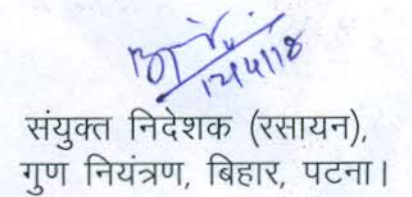 12/4/18
संयुक्त निदेशक (रसायन),
गुण नियंत्रण, बिहार, पटना।